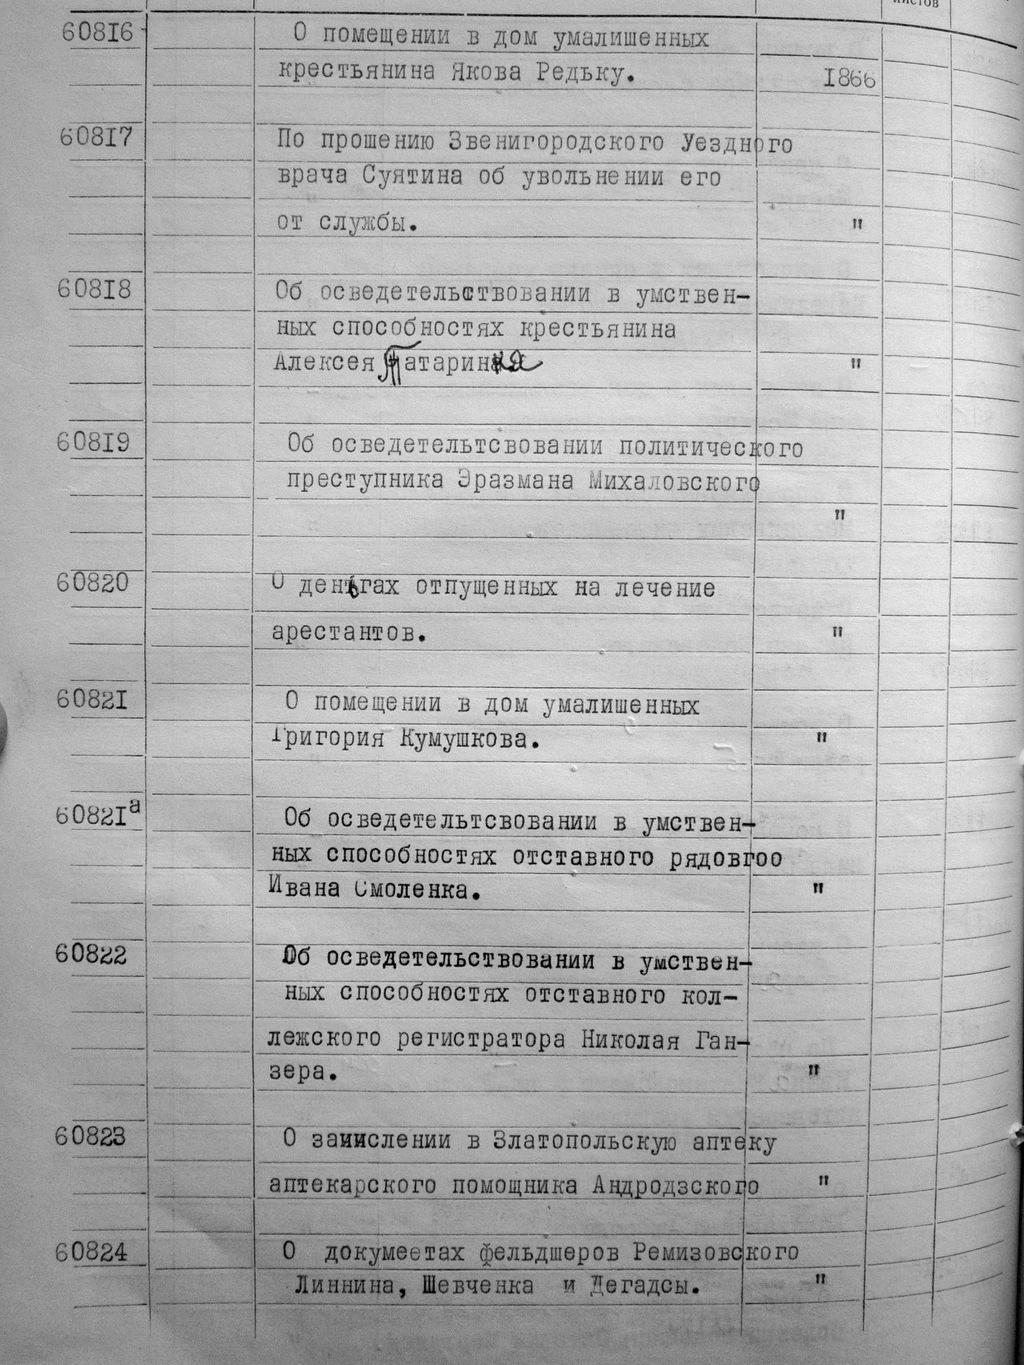 листов
60816 О помещении в дом умалишенных
крестьянина Якова Редьку. 1866
60817 По прошению Звенигородского Уездного
врача Суятина об увольнении его
от службы. "
60818 Об осведетельствовании в умствен-
ных способностях крестьянина
Алексея Татаринка "
60819 Об осведетельтсвовании политического
преступника Эразмана Михаловского
"
60820 О деньгах отпущенных на лечение
арестантов. "
60821 О помещении в дом умалишенных
Григория Кумушкова. "
60821а Об осведетельтсвовании в умствен-
ных способностях отставного рядовгоо
Ивана Смоленка. "
60822 Об осведетельствовании в умствен-
ных способностях отставного кол-
лежского регистратора Николая Ган-
зера. "
60823 О заиислении в Златопольскую аптеку
аптекарского помощника Андродзского "
60824 О докумеетах фельдшеров Ремизовского
Линнина, Шевченка и Дегадсы. "